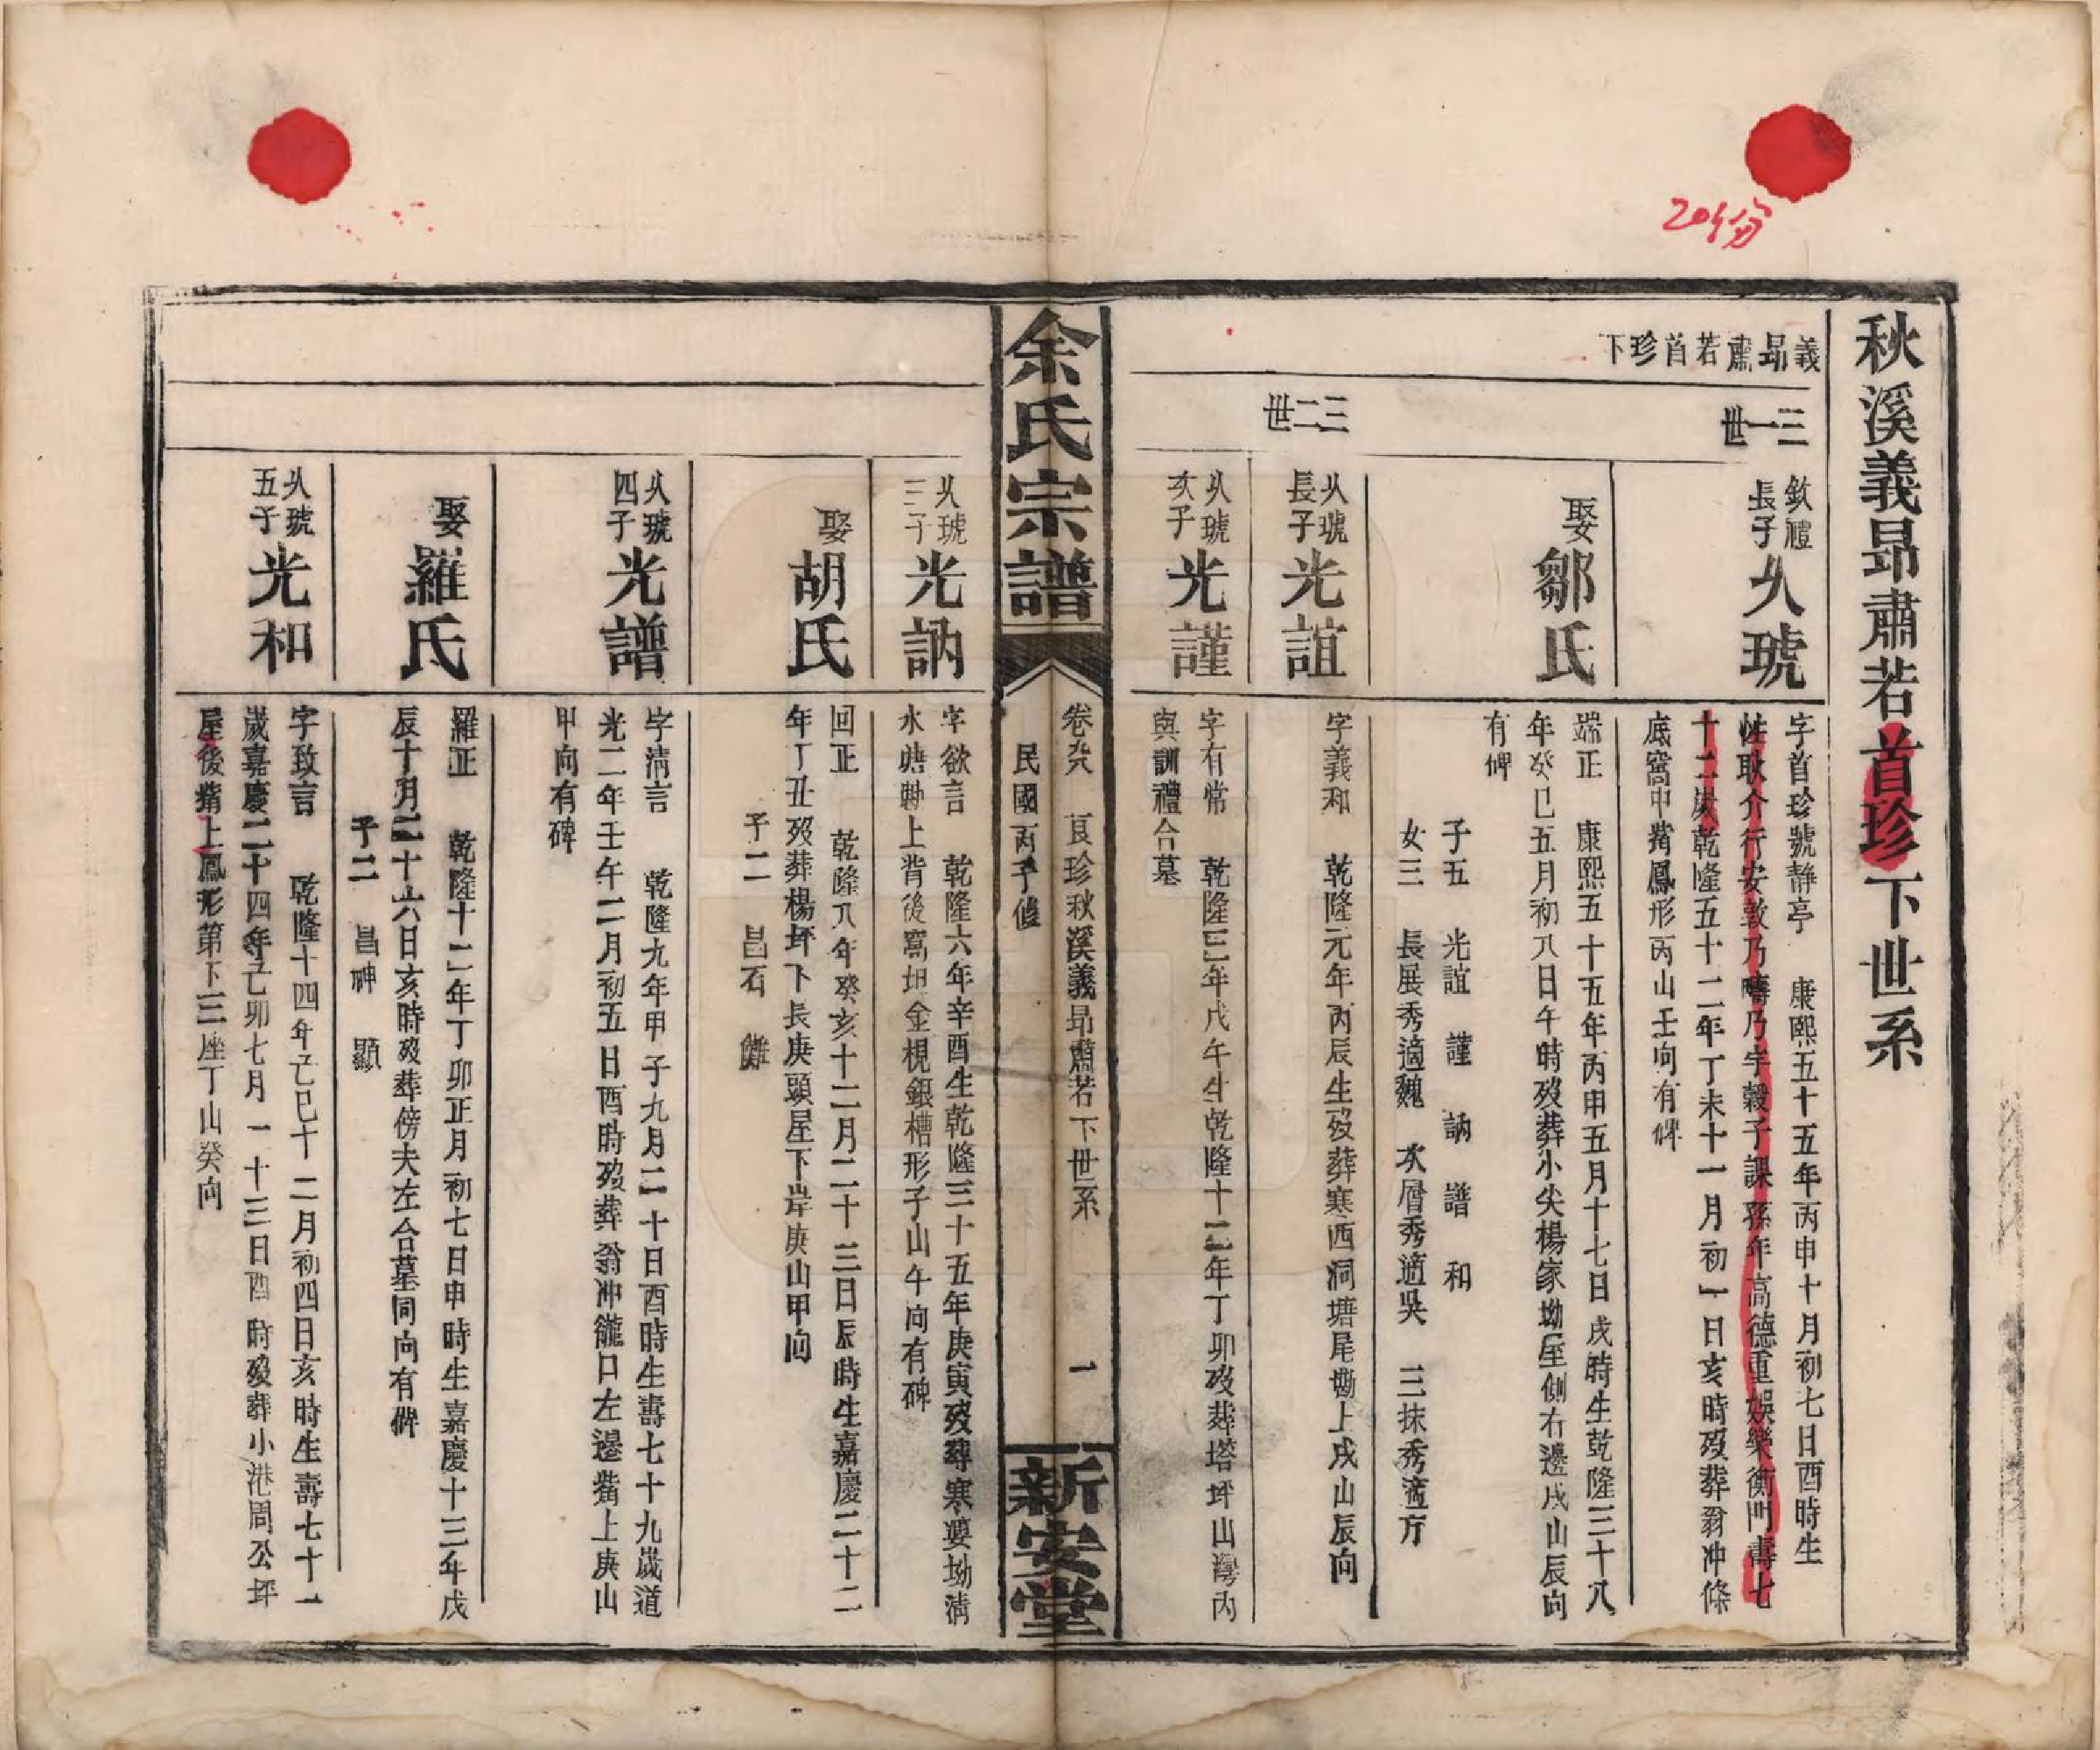 204份
秋溪義昂肅若首珍下世系
義昂肅若首珍下
三一世
欽禮
長子
久琥
字首珍號靜亭　康熙五十五年丙申十月初七日酉時生
性耿介行安敦乃疇乃宇穀子課孫年高德重娛樂衡門壽七
十二歲乾隆五十二年丁未十一月初一日亥時歿葬翁冲條
底窩中嘴鳳形丙山壬向有碑
娶鄒氏
端正　康熙五十五年丙申五月十七日戌時生乾隆三十八
年癸巳五月初八日午時歿葬小尖楊家坳屋側右邊戌山辰向
有碑
子五　光誼　謹　訥　譜　和
女三　長展秀適魏　次層秀適吳　三抹秀適方
三二世
久琥
長子
光誼
字義和　乾隆元年丙辰生歿葬寒西洞塘尾墈上戌山辰向
久琥
次子
光謹
字有常　乾隆三年戊午生乾隆十二年丁卯歿葬塔坪山灣内
與訓禮合墓
余氏宗譜
卷九　良珍秋溪義昂肅若下世系　一
民國丙子修
新安堂
久琥
三子
光訥
字欲言　乾隆六年辛酉生乾隆三十五年庚寅歿葬寒婆坳淸
水塘墈上背後窩坦金梘銀槽形子山午向有碑
娶胡氏
回正　乾隆八年癸亥十二月二十三日辰時生嘉慶二十二
年丁丑歿葬楊坪下長庚頭屋下岸庚山甲向
子二　昌石　讎
久琥
四子
光譜
字淸言　乾隆九年甲子九月二十日酉時生壽七十九歲道
光二年壬午二月初五日酉時歿葬翁冲籠口左邊嘴上庚山
甲向有碑
娶羅氏
羅正　乾隆十二年丁卯正月初七日申時生嘉慶十三年戊
辰十月二十六日亥時歿葬傍夫左合墓同向有碑
子二　昌神　顯
久琥
五子
光和
字致言　乾隆十四年己巳十二月初四日亥時生壽七十一
歲嘉慶二十四年己卯七月一十三日酉時歿葬小港周公坪
屋後嘴上鳳形第下三座丁山癸向